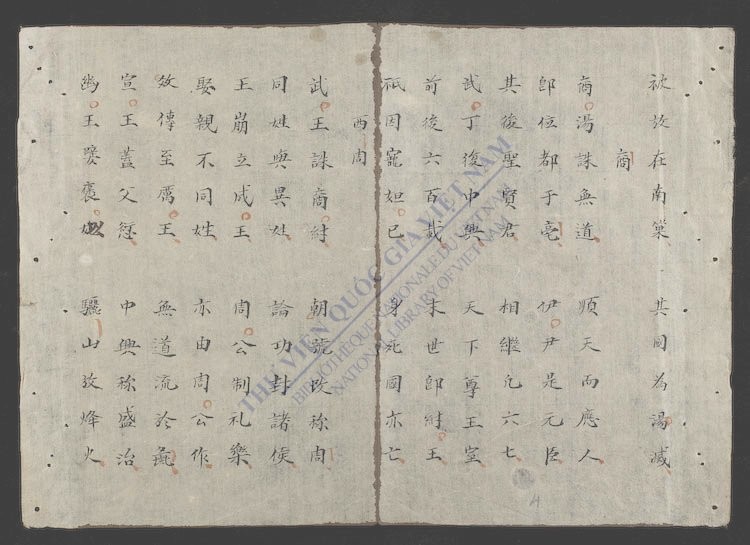 被放在南巢 其國為湯滅
商
商湯誅無道 順天而應人
即位都于亳 伊尹是元臣
其後聖賢君 相繼凡六七
武丁復中興 天下尊王室
前後六百載 末世即紂王
祇因寵妲己 身死國亦亡
西周
武王誅商紂 朝號改称周
同姓與異姓 論功封諸侯
王崩立成王 周公制礼樂
娶親不同姓 亦由周公作
效傳至厲王 無道流於彘
宣王蓋父愆 中興称盛治
幽王嬖褒姒 驪山放烽火
THƯ VIỆN QUỐC GIA VIỆT NAM
BIBLIOTHÈQUE NATIONALE DU VIETNAM
NATIONAL LIBRARY OF VIETNAM
4